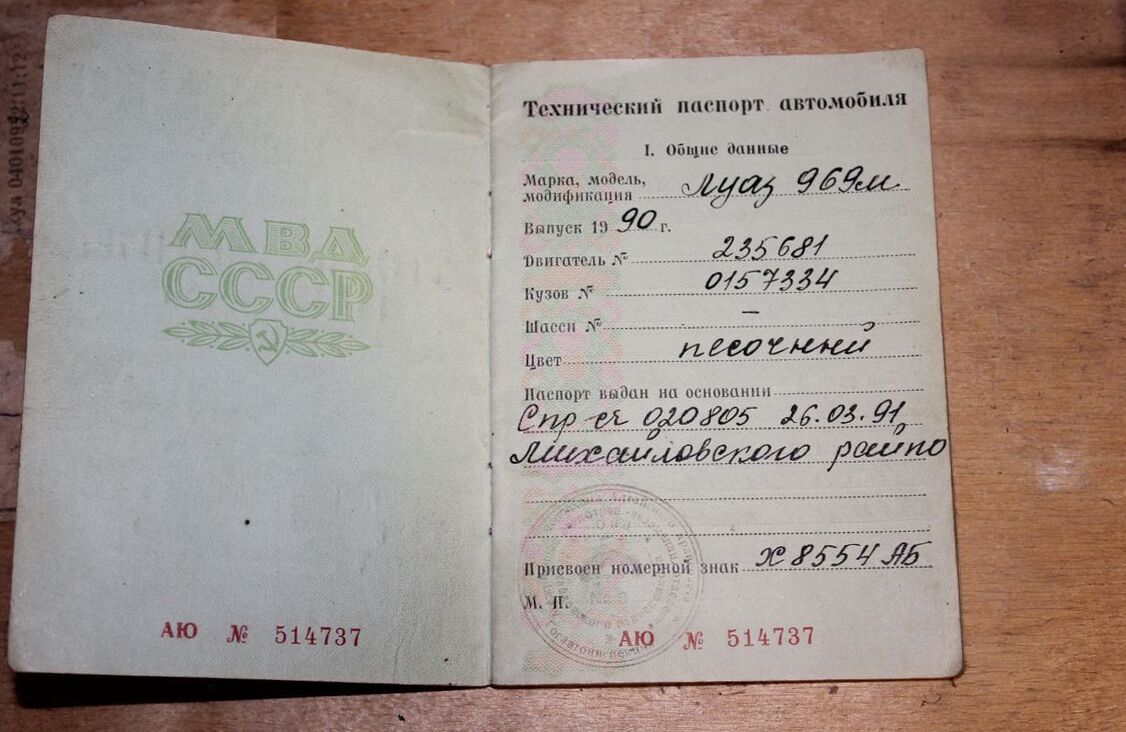 МВД
СССР
АЮ № 514737
Технический паспорт автомобиля
I. Общие данные
Марка, модель,
модификация Луаз 969м
Выпуск 19 90 г.
Двигатель № 235681
Кузов № 0157334
Шасси № –
Цвет песочный
Паспорт выдан на основании
Спр-сч 020805 26.03.91
Михайловского райпо
Присвоен номерной знак Х8554АБ
М. П.
АЮ № 514737